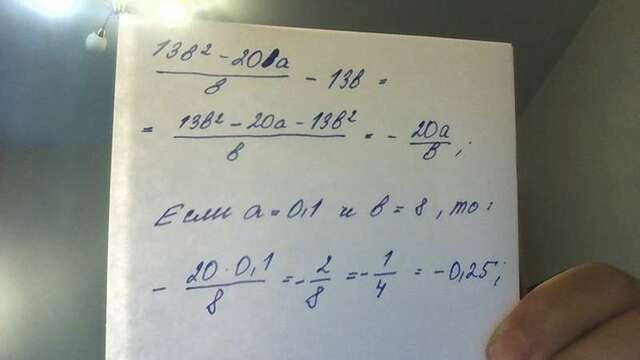 13в² - 20а / в - 13в =
= 13в² - 20а - 13в² / в = - 20а / в ;
Если а = 0,1 и в = 8, то:
- 20 · 0,1 / 8 = - 2 / 8 = - 1 / 4 = - 0,25;